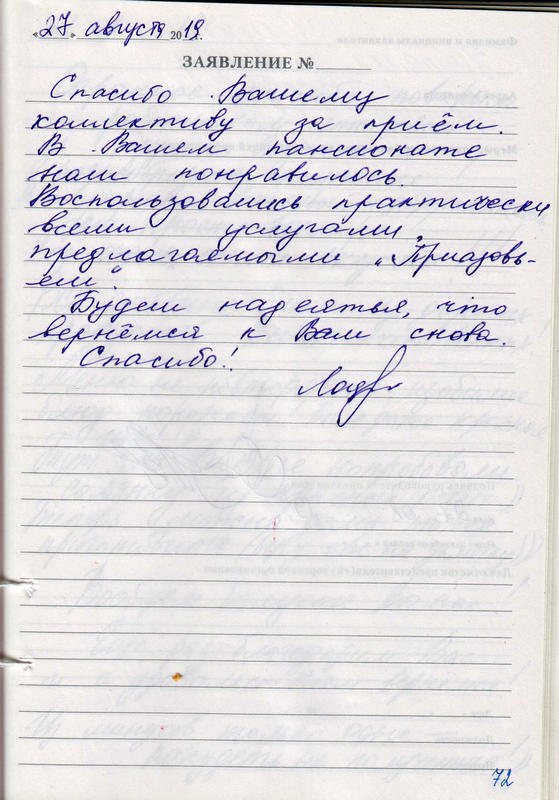 «27» августа 2019.
ЗАЯВЛЕНИЕ №
Спасибо Вашему
коллективу за приём.
В Вашем пансионате
нам понравилось.
Воспользовались практически
всеми услугами,
предлагаемыми „Приазовь-
ем“.
Будем надеяться, что
вернёмся к Вам снова.
Спасибо!
72